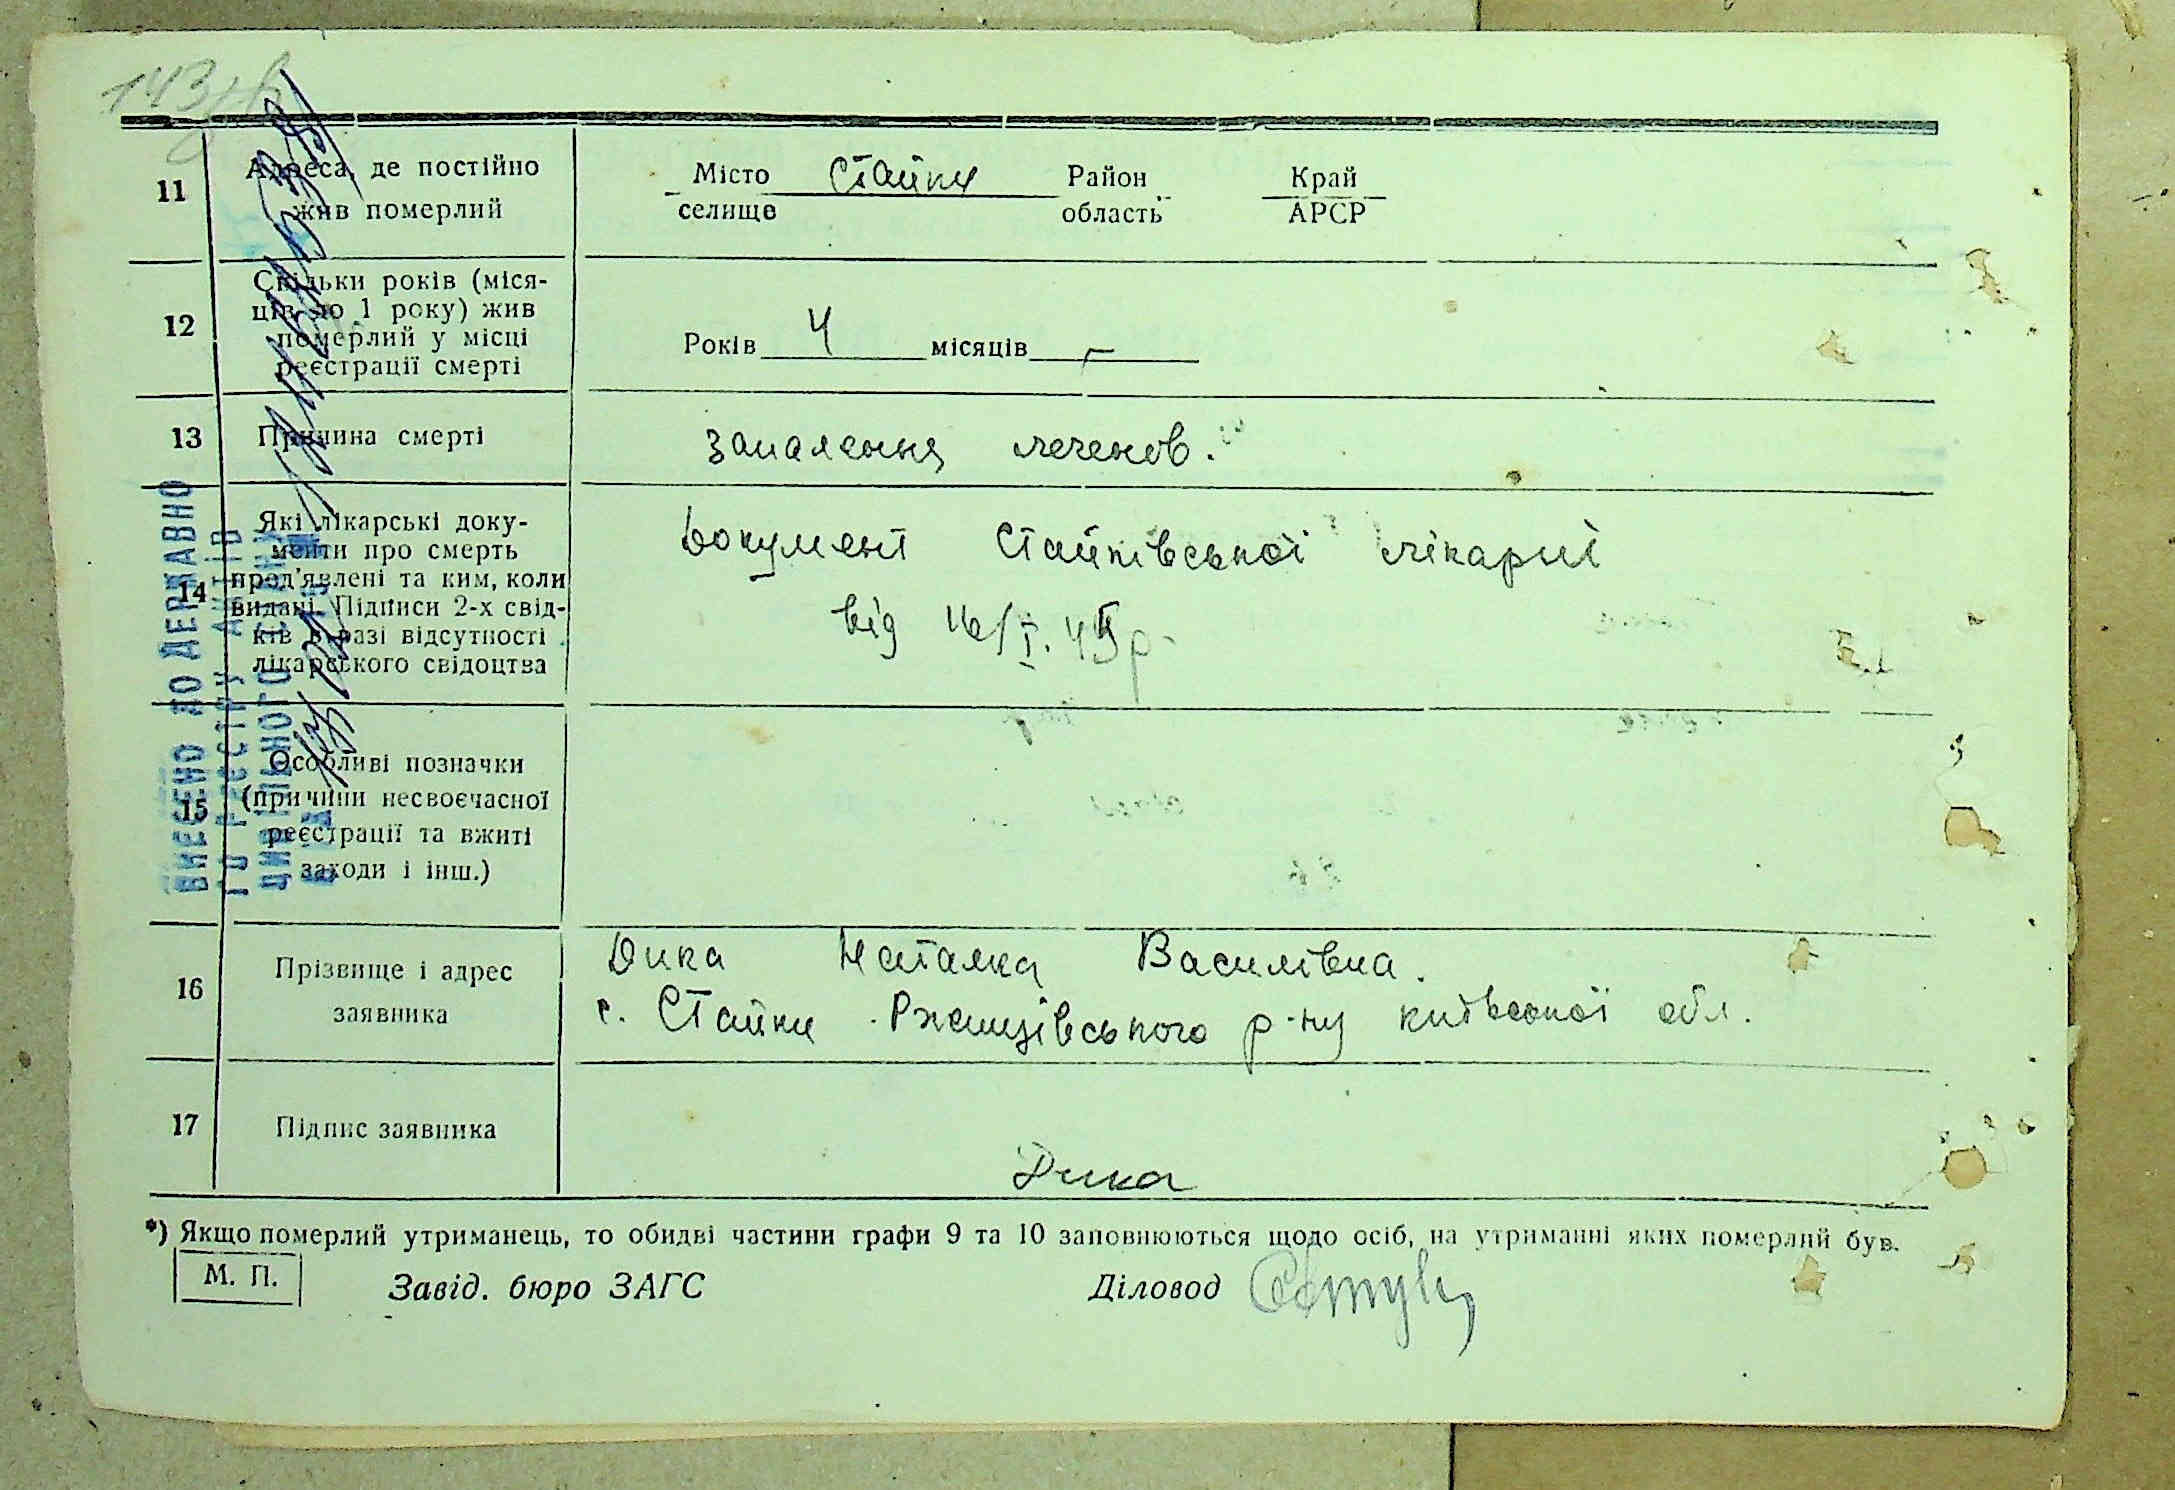 143
11
Адреса, де постійно
жив померлий
Місто Стайки Район Край
селище область АРСР
12
Скільки років (міся-
ців до 1 року) жив
померлий у місці
реєстрації смерті
Років 4 місяців —
13
Причина смерті
запалення леченов.
14
Які лікарські доку-
менти про смерть
пред'явлені та ким, коли
видані. Підписи 2-х свід-
ків в разі відсутності
лікарського свідоцтва
Документ Стайківської лікарні
від 16/I. 45р.
15
Особливі позначки
(причини несвоєчасної
реєстрації та вжиті
заходи і інш.)
ВНЕСЕНО ДО ДЕРЖАВНО
ГО РЕЄСТРУ АКТІВ
ЦИВІЛЬНОГО СТАНУ
16
Прізвище і адрес
заявника
Дика Наталка Василівна.
с. Стайки Ржищівського р-ну київської обл.
17
Підпис заявника
Дика
*) Якщо померлий утриманець, то обидві частини графи 9 та 10 заповнюються щодо осіб, на утриманні яких померлий був.
М. П.
Завід. бюро ЗАГС
Діловод